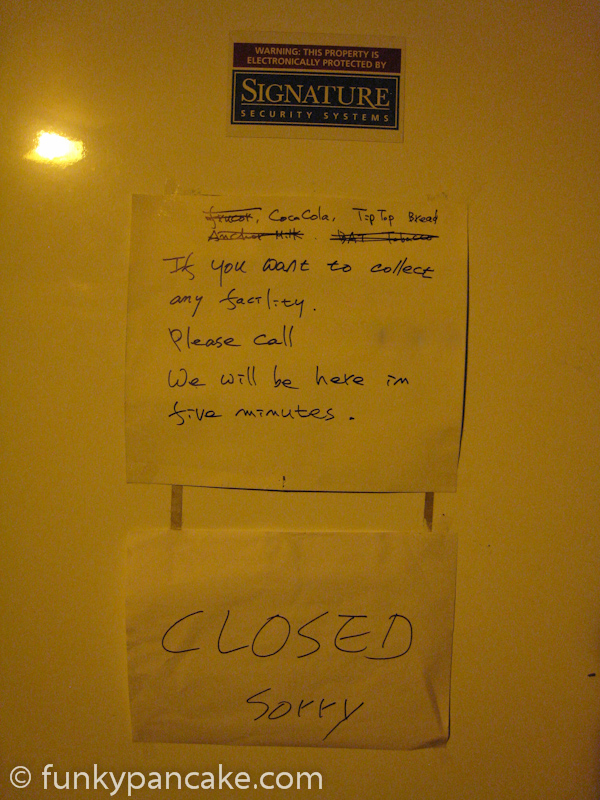 WARNING: THIS PROPERTY IS
ELECTRONICALLY PROTECTED BY
SIGNATURE
SECURITY SYSTEMS
frucor, CocaCola, TipTop Bread
Anchor Milk. BAT Tobacco
If you want to collect
any facility.
Please call
We will be here in
five minutes.
CLOSED
Sorry
© funkypancake.com